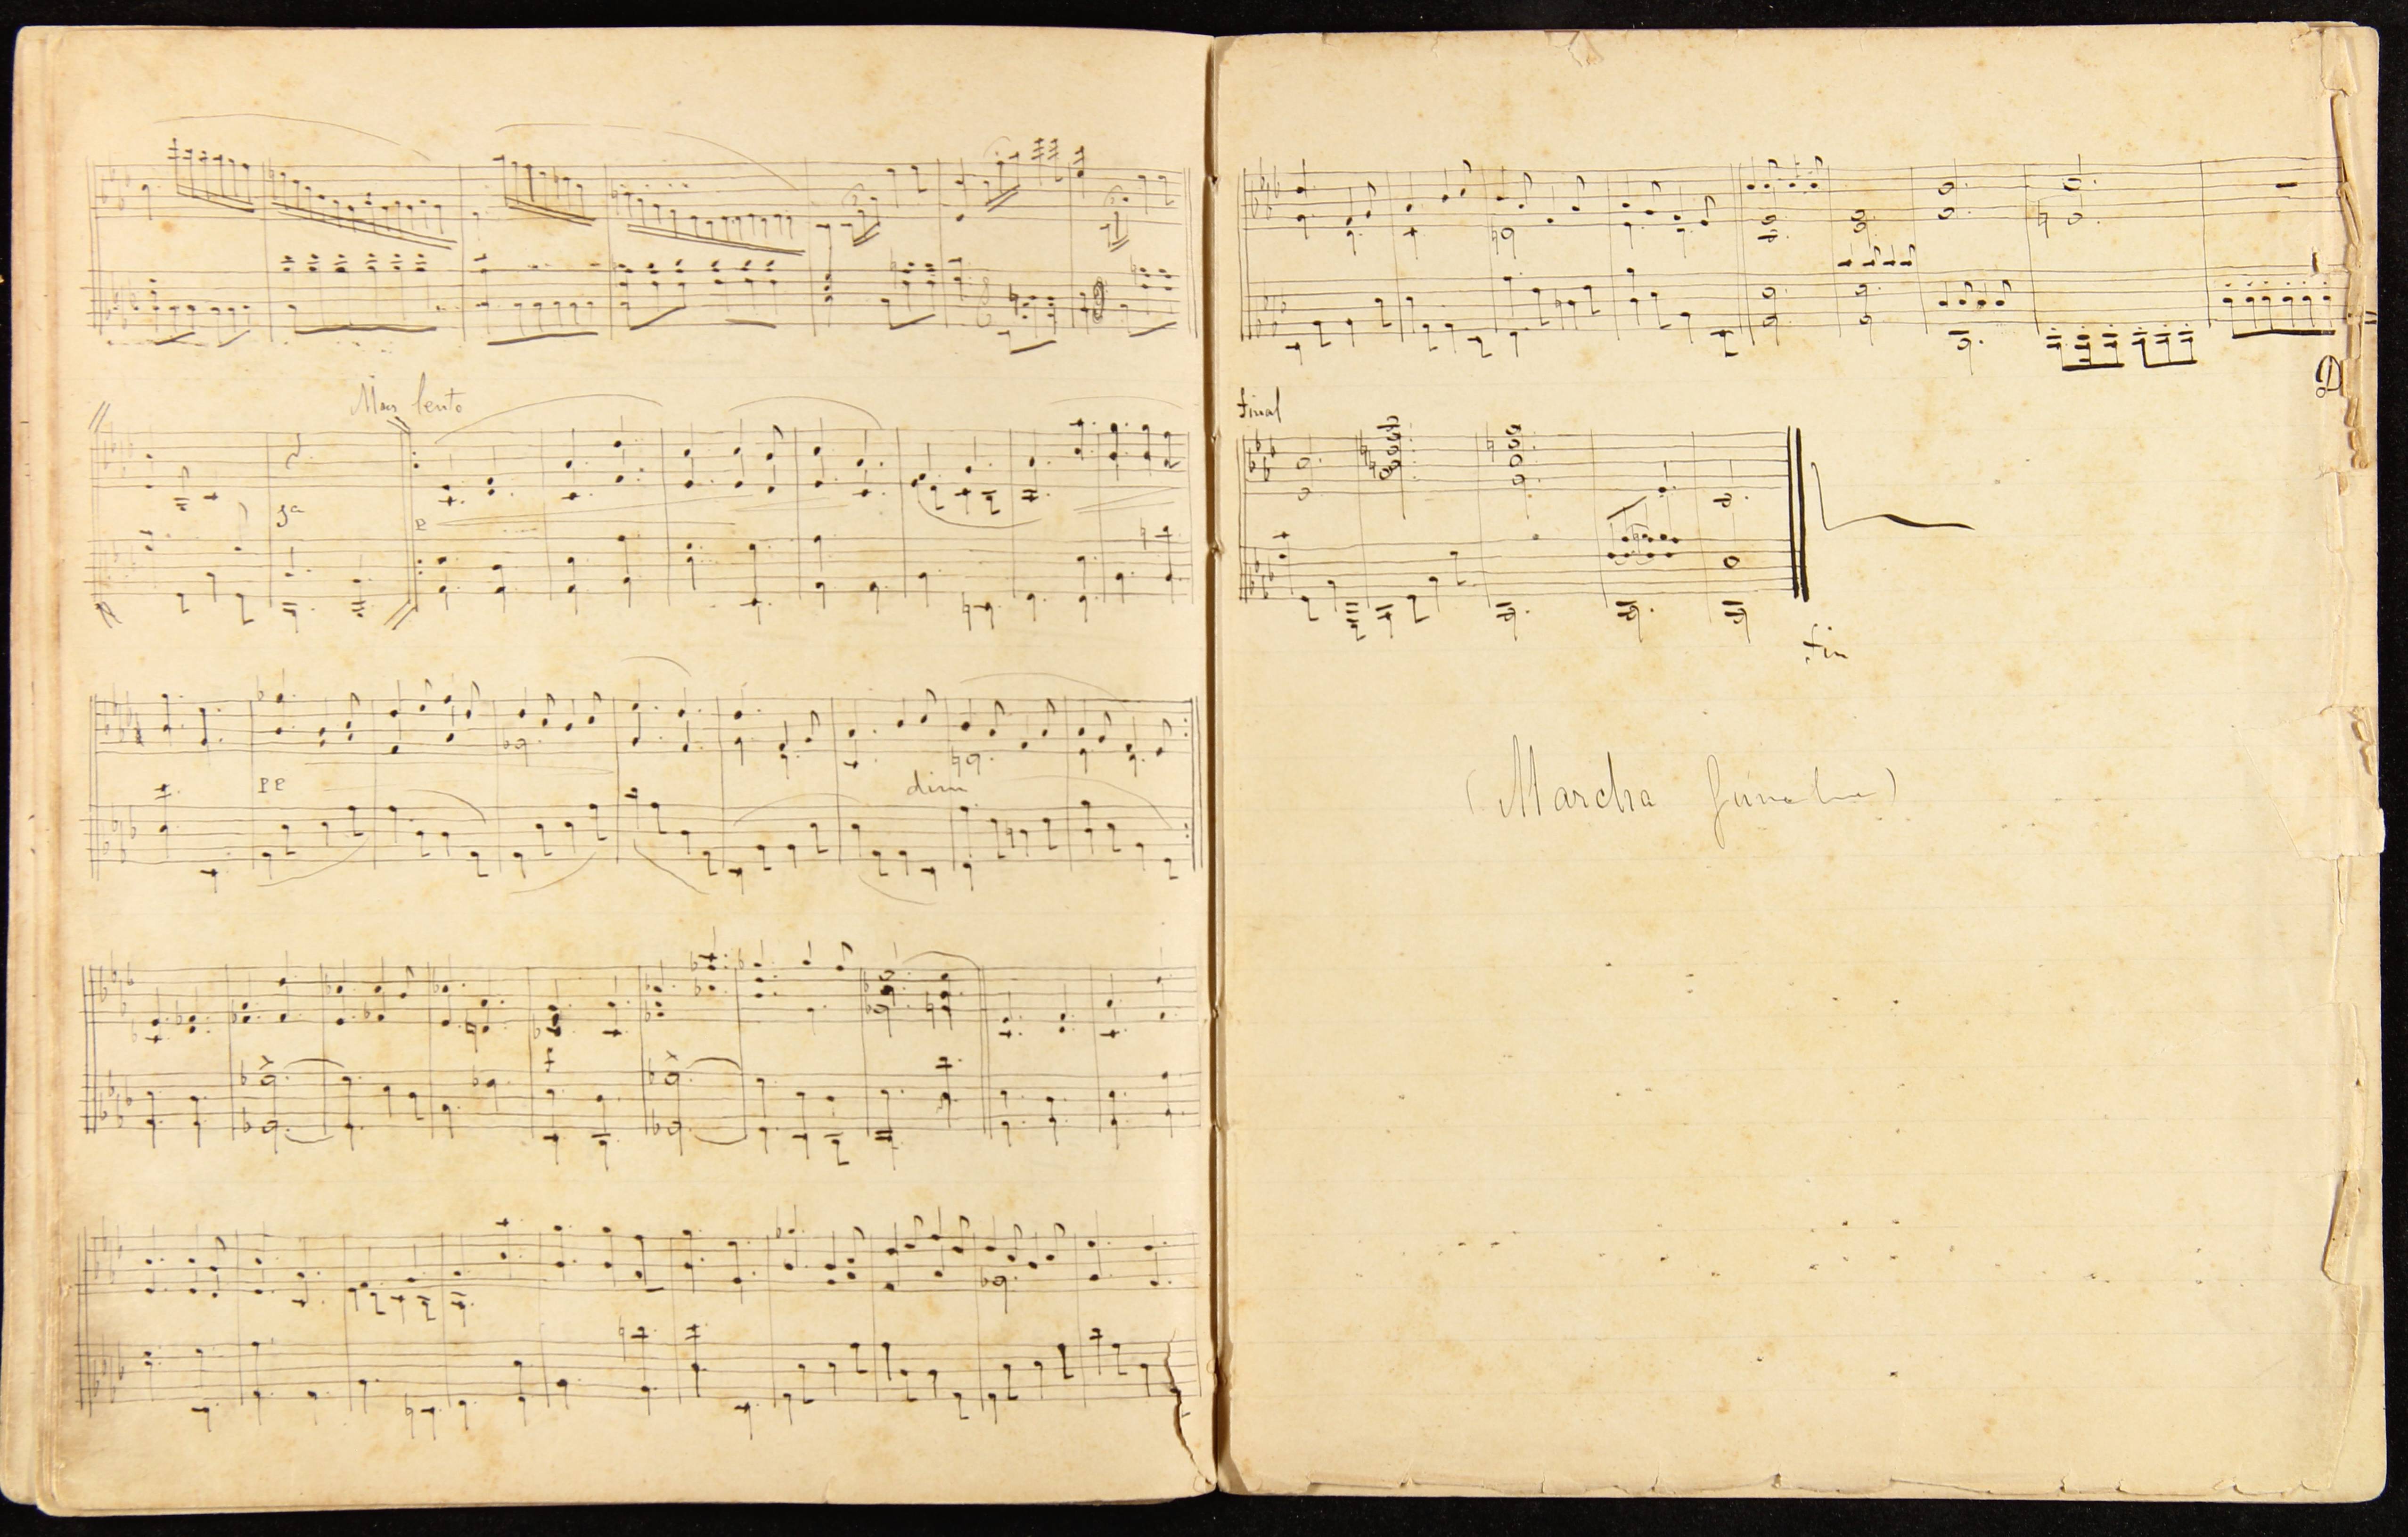 Mas lento
ga
P
PP
dim
Final
Fin
(Marcha funebre)